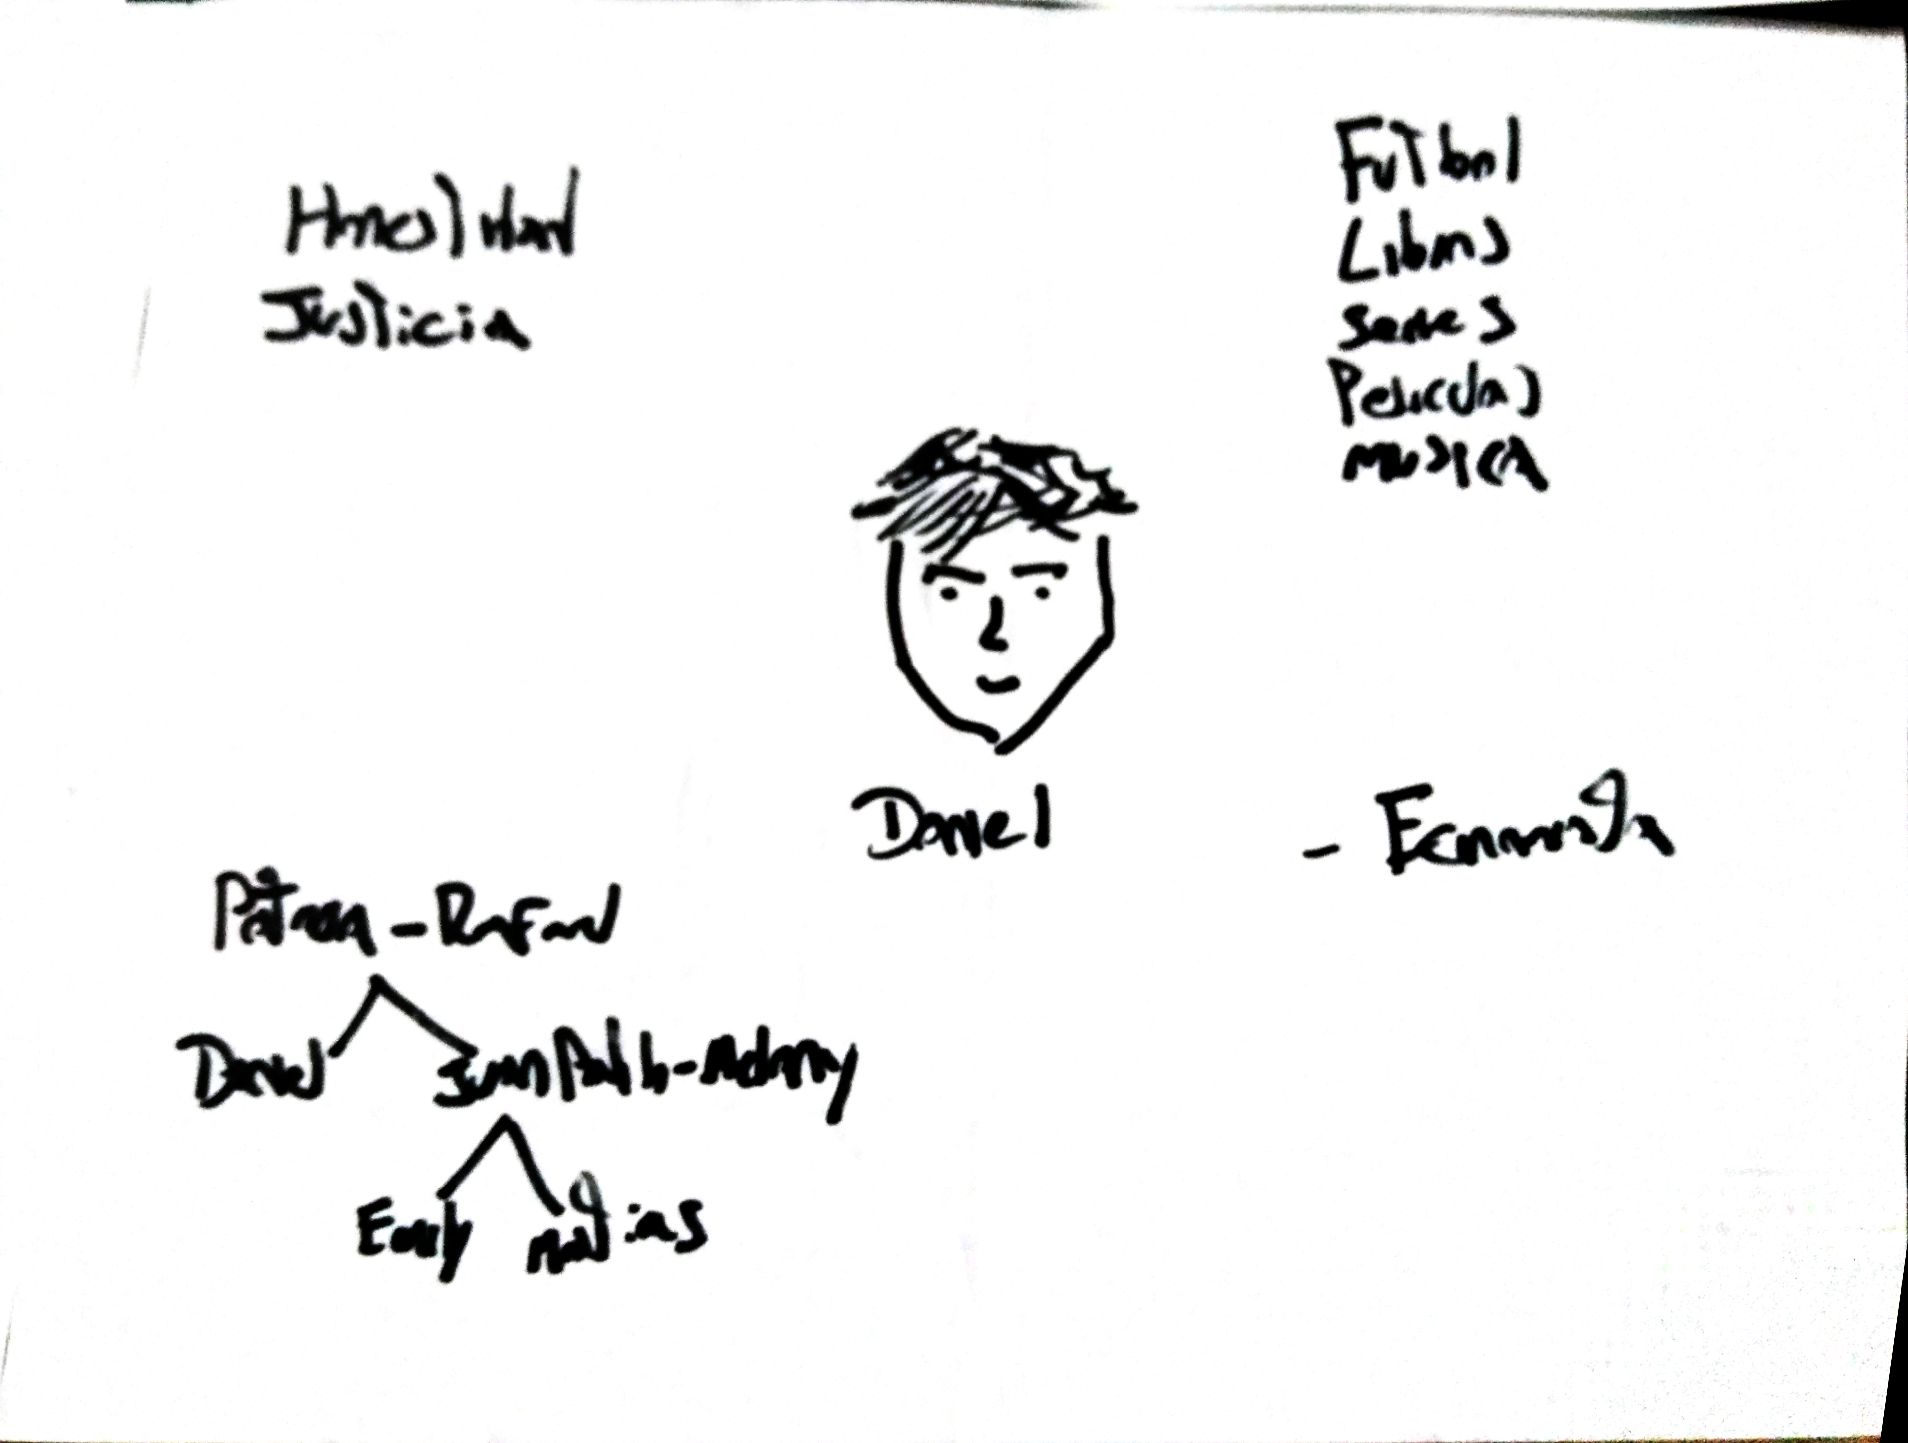 Honestidad
Justicia
Futbol
Libros
series
Peliculas
musica
Daniel
- Economista
Patricia - Rafael
Daniel Juan Pablo -
Emily matias